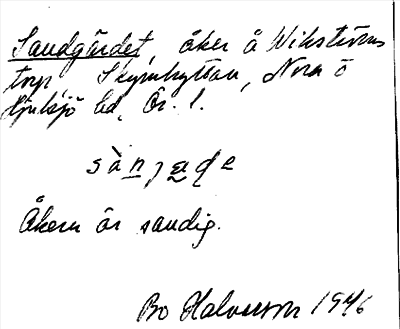 Sandgärdet, åker å Wikströms
torp, Skymhyttan, Nora o
Hjulsjö bd, Ör. l.
sàn̲ j a̲ ɖ e
Åkern är sandig.
Bo Halvarson 1946